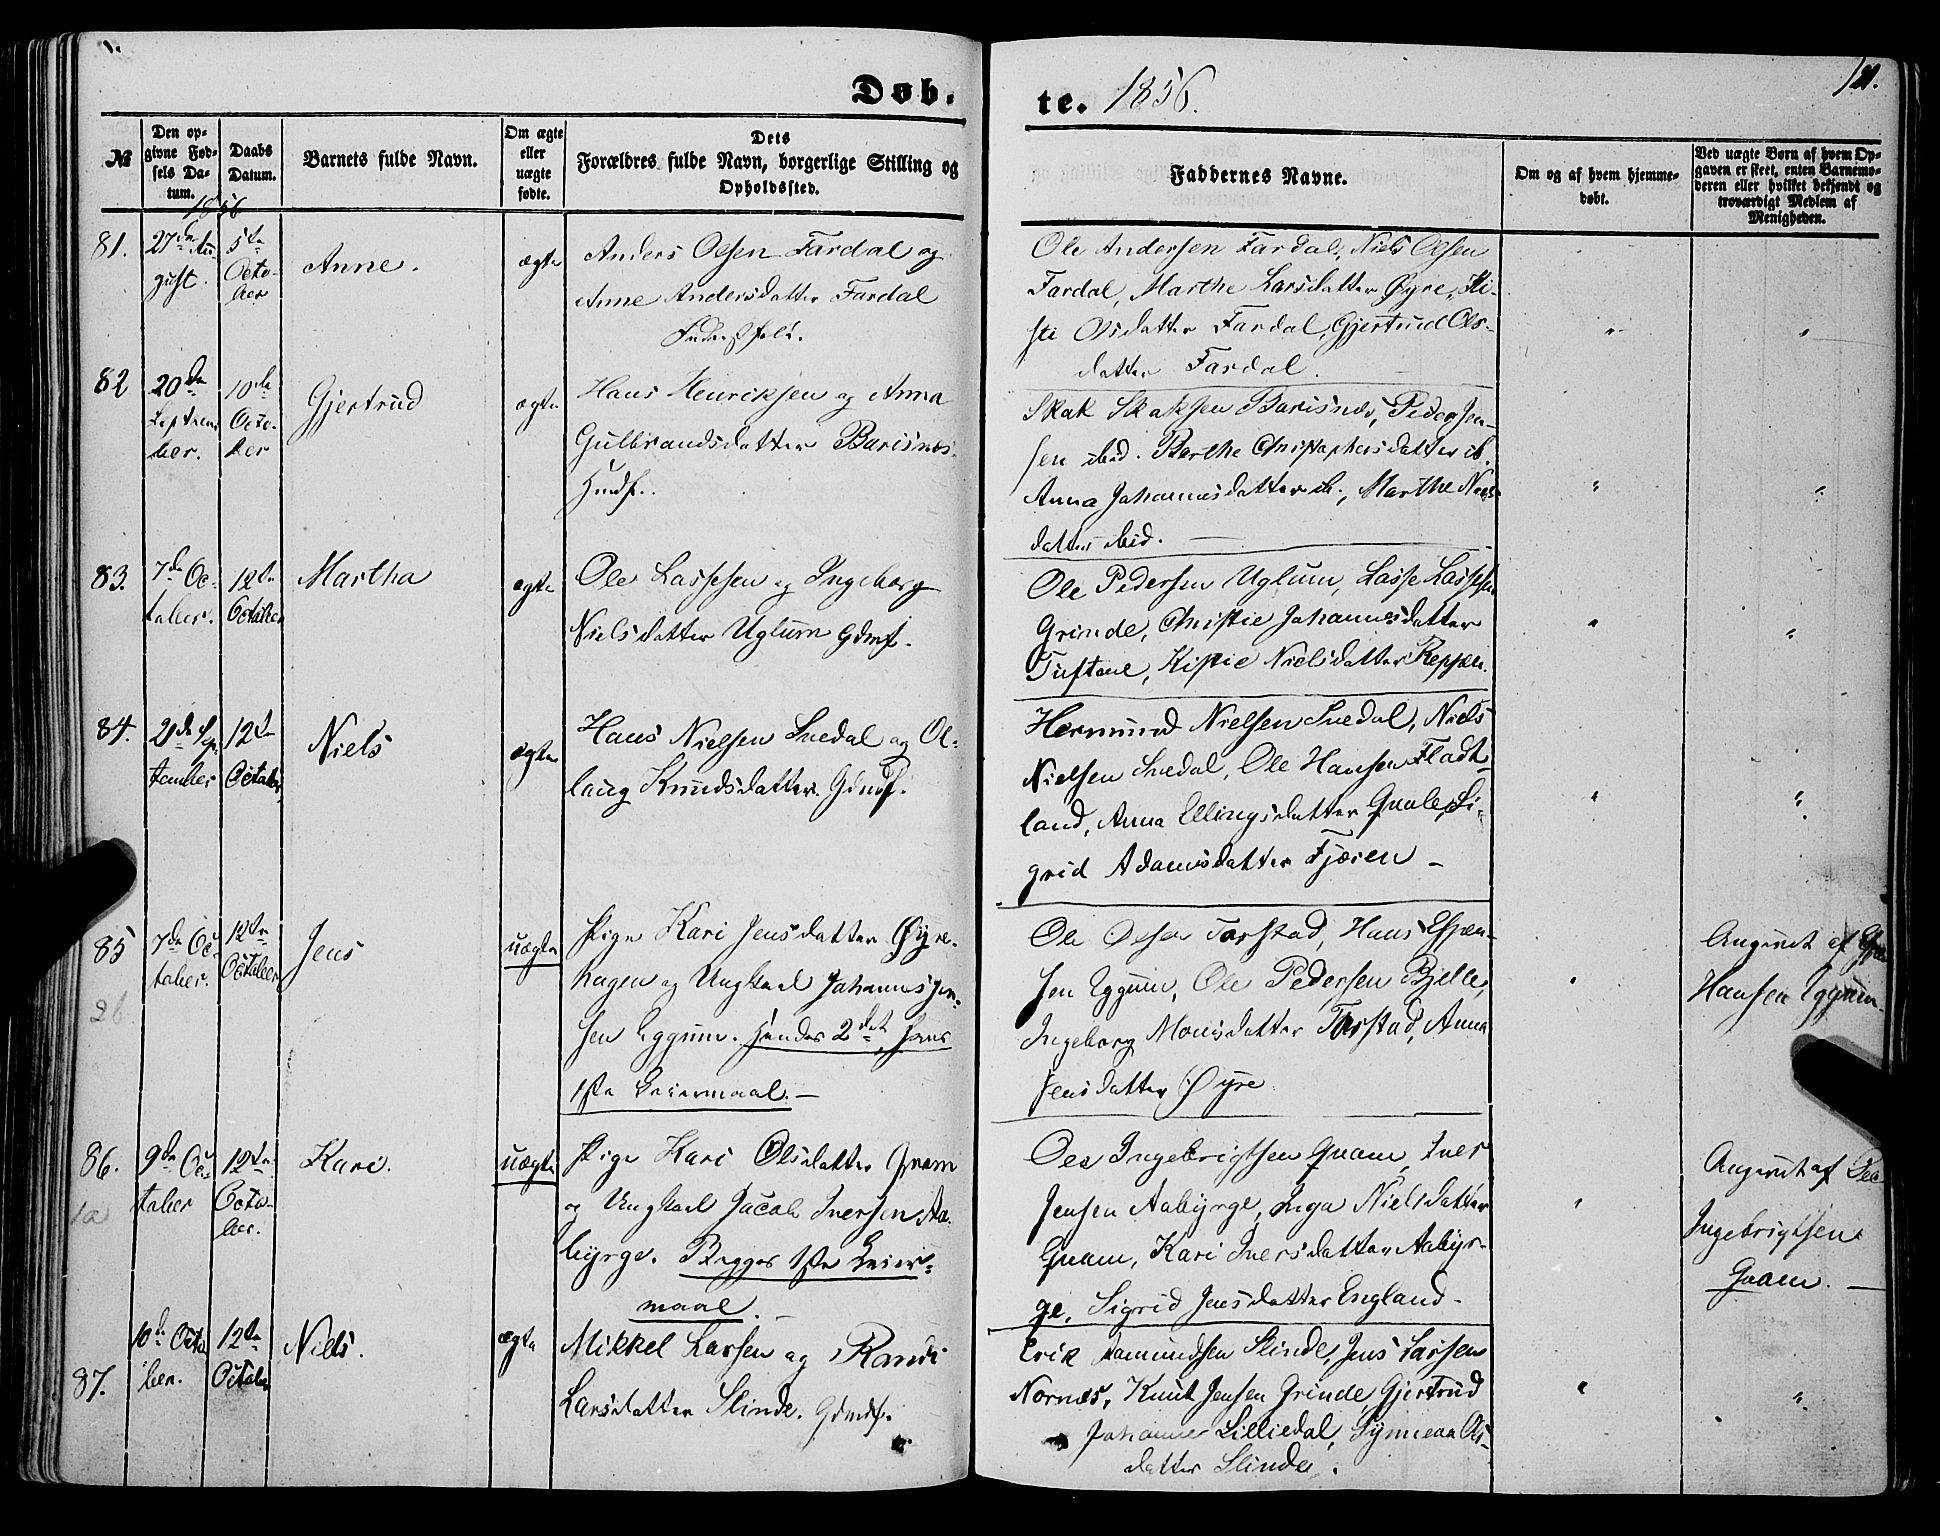 Døb.
te. 1856.
121.
№
Den op-
givne Fød-
sels Da-
tum.
Daabs
Datum.
Barnets fulde Navn.
Om ægte
eller
uægte
fødte.
Dets
Forældres fulde Navn, borgerlige Stilling og
Opholdssted.
Faddernes Navne.
Om og af hvem hjemme-
døbt.
Ved uægte Børn af hvem Op-
gaven er skeet, enten Barnemo-
deren eller hvilket bekjendt og
troværdigt Medlem af
Menigheden.
1856
81.
27de Au-
gust.
5te
Octo-
ber
Anne.
ægte
Anders Olsen Fardal og
Anne Andersdatter Fardal
Ole Andersen Fardal, Niels Olsen
Fardal, Marthe Larsdatter Øyre, Ki-
sti Olsdatter Fardal, Gjertrud Ols-
datter Fardal.
82
20de
Septem-
ber.
10de
Octo-
ber
Gjertrud
ægte
Hans Henriksen og Anna
Gulbrandsdatter Barisnes.
Huusf.
Skak Skaksen Barisnes, Peder Jen-
sen ibid. Berthe Christophersdatter ib.
Anna Johannesdatter ib., Marthe Niels-
datter ibid.
83.
7de Oc-
tober.
12te
October
Martha
ægte
Ole Lassesen og Ingeborg
Nielsdatter Uglum Gdmf.
Ole Pedersen Uglum, Lasse Lassesen
Grinde, Christie Johannesdatter
Tuftene, Kistie Nielsdatter Reppen.
84.
21de Sep-
tember
12te
October,
Niels
ægte
Hans Nielsen Snedal og Ol-
laug Knudsdatter. Gdmf.
Hermund Nielsen Snedal, Niels
Nielsen Snedal, Ole Hansen Fladh-
land, Anna Ellingsdatter Quale, Si-
grid Adamsdatter Fjæren –
85
26
7de Oc-
tober.
12te
October
Jens
uægte
Pige Kari Jensdatter Øyre-
hagen og Ungkarl Johannes Jen-
sen Eggum. Hendes 2det, Hans
1ste Leiermaal. –
Ole Olsen Farstad, Hans Espen-
sen Eggum, Ole Pedersen Bjelle,
Ingeborg Monsdatter Farstad, Anna
Jensdatter Øyre
Angivet af
Hansen Eggum
86.
10
9de Oc-
tober
12te
Octo-
ber.
Kari.
uægte
Pige Kari Olsdatter Qvam
og Ungkarl Jacob Iversen Aa-
byrge. Begges 1ste Leier-
maal. –
Ole Ingebrigtsen Quam, Iver
Jensen Aabyrge, Inga Nielsdatter
Quam, Kari Iversdatter Aabyr-
ge, Sigrid Jensdatter England.
Angivet af Ole
Ingebrigtsen
Quam. –
87.
10de Octo-
ber.
12te
October
Niels.
ægte
Mikkel Larsen og Randi
Larsdatter Slinde. Gdmf.
Erik Aamundsen Slinde, Jens Larsen
Nornes, Knut Jensen Grinde, Gjertrud
Johannes Lilliedal, Synneva Ols-
datter Slinde.